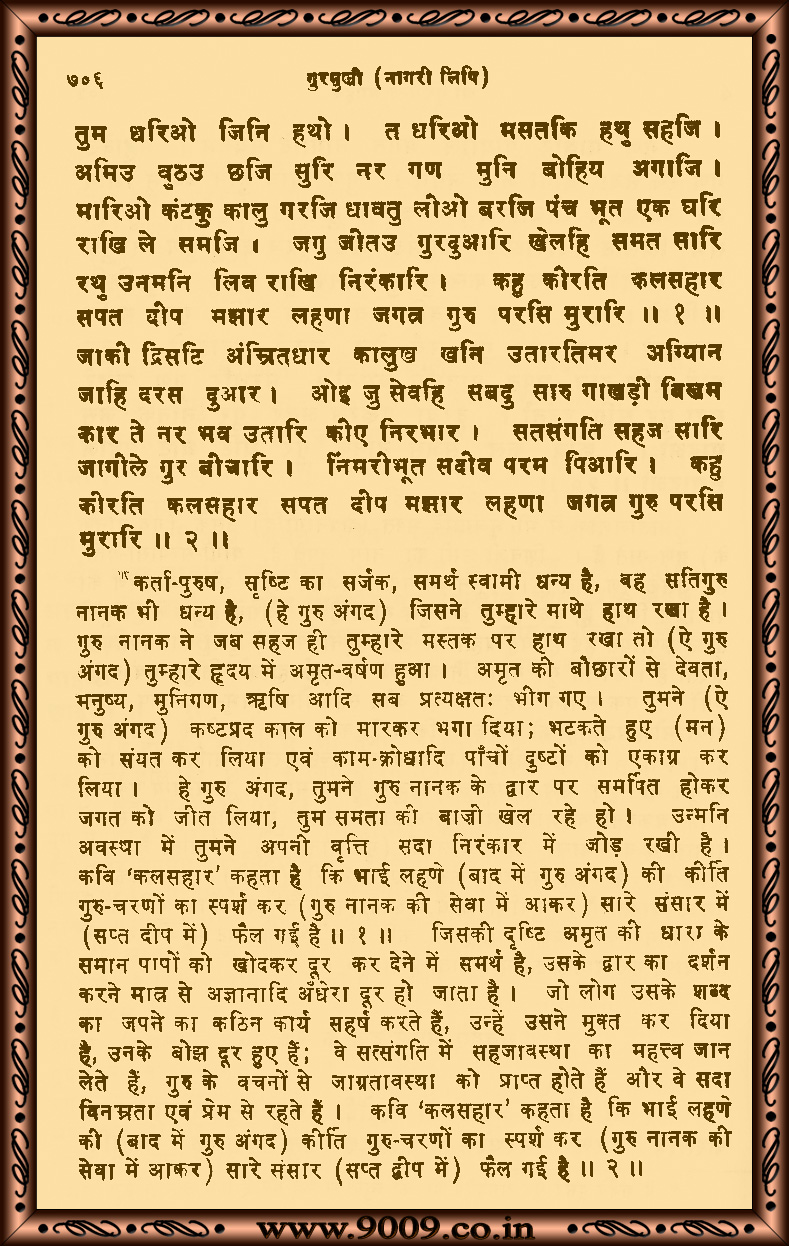 ७०६ गुरमुखी (नागरी लिपि)
तुम धरिओ जिनि हथो । त धरिओ मसतकि हथु सहजि ।
अमिउ वुठउ छजि सुरि नर गण मुनि बोहिय अगाजि ।
मारिओ कंटकु कालु गरजि धावतु लीओ बरजि पंच भूत एक घरि
राखि ले समजि । जगु जीतउ गुरदुआरि खेलहि समत सारि
रथु उनमनि लिव राखि निरंकारि । कहु कीरति कलसहार
सपत दीप मझार लहणा जगत्र गुरु परसि मुरारि ॥ १ ॥
जाकी द्रिसटि अंम्रितधार कालुख खनि उतारतिमर अग्यिान
जाहि दरस दुआर । ओइ जु सेवहि सबदु सारु गाखड़ी बिखम
कार ते नर भव उतारि कीए निरभार । सतसंगति सहज सारि
जागीले गुर बीचारि । निंमरीभूत सदीव परम पिआरि । कहु
कीरति कलसहार सपत दीप मझार लहणा जगत्र गुरु परसि
मुरारि ॥ २ ॥
कर्ता-पुरुष, सृष्टि का सर्जक, समर्थ स्वामी धन्य है, वह सतिगुरु
नानक भी धन्य है, (हे गुरु अंगद) जिसने तुम्हारे माथे हाथ रखा है ।
गुरु नानक ने जब सहज ही तुम्हारे मस्तक पर हाथ रखा तो (ऐ गुरु
अंगद) तुम्हारे हृदय में अमृत-वर्षण हुआ । अमृत की बोछारों से देवता,
मनुष्य, मुनिगण, ऋषि आदि सब प्रत्यक्षतः भीग गए । तुमने (ऐ
गुरु अंगद) कष्टप्रद काल को मारकर भगा दिया; भटकते हुए (मन)
को संयत कर लिया एवं काम-क्रोधादि पाँचों दुष्टों को एकाग्र कर
लिया । हे गुरु अंगद, तुमने गुरु नानक के द्वार पर समर्पित होकर
जगत को जीत लिया, तुम समता की बाज़ी खेल रहे हो । उन्मनि
अवस्था में तुमने अपनी वृत्ति सदा निरंकार में जोड़ रखी है ।
कवि ‘कलसहार’ कहता है कि भाई लहणे (बाद में गुरु अंगद) की कीर्ति
गुरु-चरणों का स्पर्श कर (गुरु नानक की सेवा में आकर) सारे संसार में
(सप्त दीप में) फैल गई है ॥ १ ॥ जिसकी दृष्टि अमृत की धारा के
समान पापों को खोदकर दूर कर देने में समर्थ है, उसके द्वार का दर्शन
करने मात्र से अज्ञानादि अँधेरा दूर हो जाता है । जो लोग उसके शब्द
का जपने का कठिन कार्य सहर्ष करते हैं, उन्हें उसने मुक्त कर दिया
है, उनके बोझ दूर हुए हैं; वे सत्संगति में सहजावस्था का महत्त्व जान
लेते हैं, गुरु के वचनों से जाग्रतावस्था को प्राप्त होते हैं और वे सदा
विनम्रता एवं प्रेम से रहते हैं । कवि ‘कलसहार’ कहता है कि भाई लहणे
की (बाद में गुरु अंगद) कीर्ति गुरु-चरणों का स्पर्श कर (गुरु नानक की
सेवा में आकर) सारे संसार (सप्त द्वीप में) फैल गई है ॥ २ ॥
www.9009.co.in